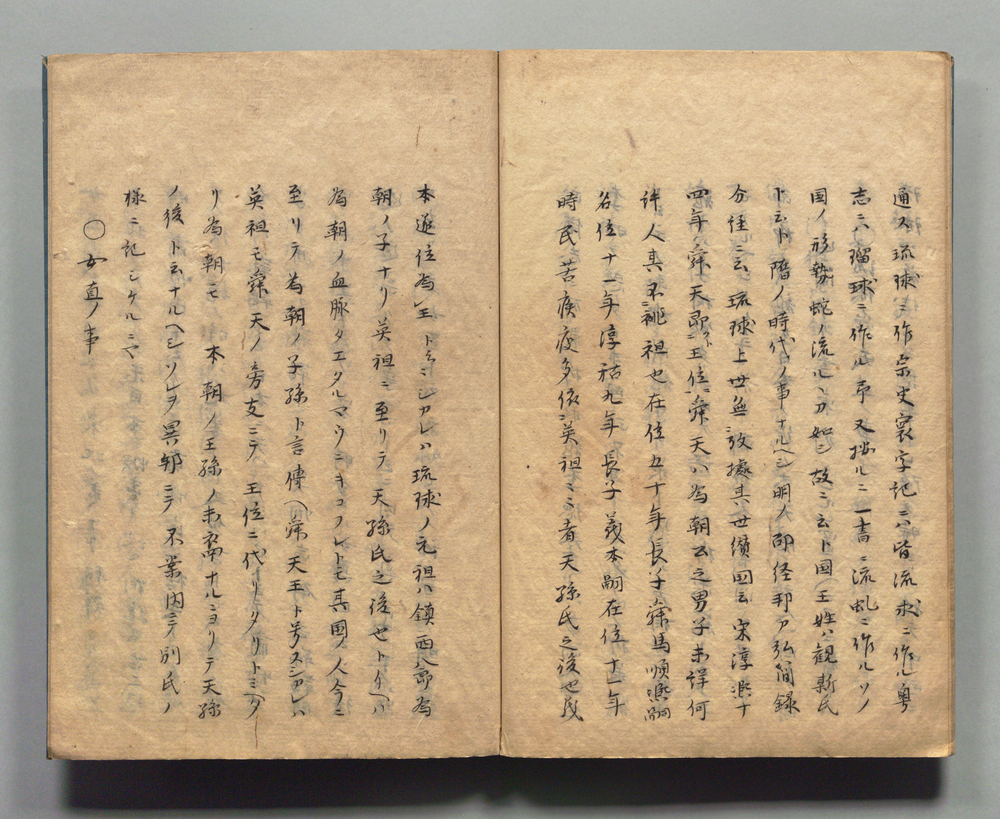 通ス琉球ニ作宗史寰宇記ニハ皆流求ニ作ル粤
志ニハ瑠球ニ作ル又一書ニ流虬ニ作ルソノ
国ノ形勢蛇ノ流ルヽカ如シ故ニ云ト国王姓ハ観斯氏
ト云ト隋ノ時代ノ事ナルヘシ明ノ邵経邦カ弘簡録
分註ニ云琉球上世無攷據其世纘図云宋淳凞十
四年舜天即王位舜天ハ為朝公之男子未詳何
許人真不祧祖也在位五十年長子舜馬順凞嗣
名位十一年淳祐九年長子義本嗣在位十一年
時民苦疾疫多依英祖英祖者天孫氏之後也民
本遜位為王トシカレハ琉球ノ元祖ハ鎮西八郎為
朝ノ子ナリ英祖ニ至リテ天孫氏之後也トイヘハ
為朝ノ血脉タエタルヤウニキコフレトモ其国ノ人今ニ
至リテ為朝ノ子孫ト言傳ヘ舜天王ト号スシカレハ
英祖モ舜天ノ旁支ニテ王位ニ代
リ為朝モ本朝ノ王孫ノ末裔ナルニヨリテ天孫
ノ後ト云ナルヘシソレヲ異邦ニテ不案内ニテ別氏ノ
様ニ記シケルニヤ
○女直ノ事